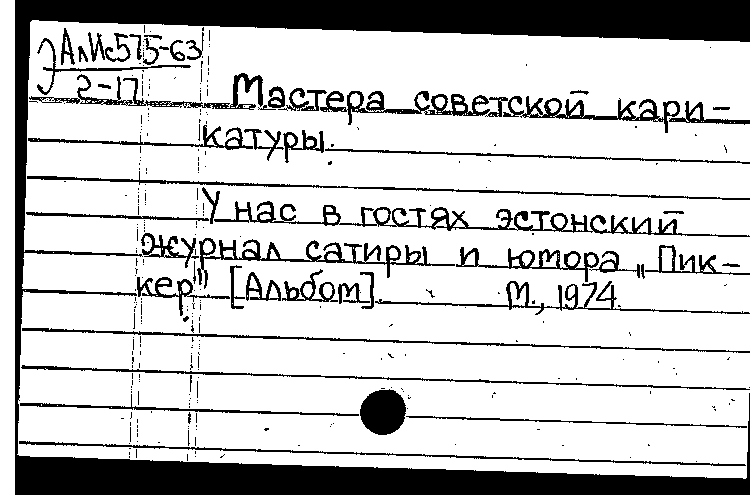 Э АлИс575-63
2-17
Мастера советской кари-
катуры.
У нас в гостях эстонский
журнал сатиры и юмора „Пик-
кер" [Альбом]. М., 1974.